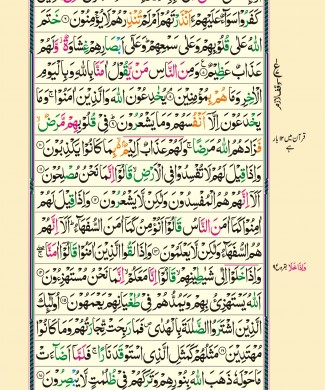 كَفَرُوْا سَوَآءٌ عَلَيْهِمْ ءَاَنْذَرْتَهُمْ اَمْ لَمْ تُنْذِرْهُمْ لَا يُؤْمِنُوْنَ ۝ خَتَمَ
اللّٰهُ عَلٰى قُلُوْبِهِمْ وَعَلٰى سَمْعِهِمْ ؕ وَعَلٰٓى اَبْصَارِهِمْ غِشَاوَةٌ ؗ وَّلَهُمْ
عَذَابٌ عَظِيْمٌ ۝ وَمِنَ النَّاسِ مَنْ يَّقُوْلُ اٰمَنَّا بِاللّٰهِ وَبِالْيَوْمِ
الْاٰخِرِ وَمَا هُمْ بِمُؤْمِنِيْنَ ۝ يُخٰدِعُوْنَ اللّٰهَ وَالَّذِيْنَ اٰمَنُوْا ۚ وَمَا
يَخْدَعُوْنَ اِلَّآ اَنْفُسَهُمْ وَمَا يَشْعُرُوْنَ ۝ فِيْ قُلُوْبِهِمْ مَّرَضٌ ۙ
فَزَادَهُمُ اللّٰهُ مَرَضًا ۚ وَلَهُمْ عَذَابٌ اَلِيْمٌۢ ۙ بِمَا كَانُوْا يَكْذِبُوْنَ ۝
وَاِذَا قِيْلَ لَهُمْ لَا تُفْسِدُوْا فِي الْاَرْضِ ۙ قَالُوْٓا اِنَّمَا نَحْنُ مُصْلِحُوْنَ ۝
اَلَآ اِنَّهُمْ هُمُ الْمُفْسِدُوْنَ وَلٰكِنْ لَّا يَشْعُرُوْنَ ۝ وَاِذَا قِيْلَ لَهُمْ
اٰمِنُوْا كَمَآ اٰمَنَ النَّاسُ قَالُوْٓا اَنُؤْمِنُ كَمَآ اٰمَنَ السُّفَهَآءُ ؕ اَلَآ اِنَّهُمْ
هُمُ السُّفَهَآءُ وَلٰكِنْ لَّا يَعْلَمُوْنَ ۝ وَاِذَا لَقُوا الَّذِيْنَ اٰمَنُوْا قَالُوْٓا اٰمَنَّا ۖۚ
وَاِذَا خَلَوْا اِلٰى شَيٰطِيْنِهِمْ ۙ قَالُوْٓا اِنَّا مَعَكُمْ ۙ اِنَّمَا نَحْنُ مُسْتَهْزِءُوْنَ ۝
اَللّٰهُ يَسْتَهْزِئُ بِهِمْ وَيَمُدُّهُمْ فِيْ طُغْيَانِهِمْ يَعْمَهُوْنَ ۝ اُولٰٓئِكَ
الَّذِيْنَ اشْتَرَوُا الضَّلٰلَةَ بِالْهُدٰى ۪ فَمَا رَبِحَتْ تِّجَارَتُهُمْ وَمَا كَانُوْا
مُهْتَدِيْنَ ۝ مَثَلُهُمْ كَمَثَلِ الَّذِي اسْتَوْقَدَ نَارًا ۚ فَلَمَّآ اَضَآءَتْ
مَا حَوْلَهٗ ذَهَبَ اللّٰهُ بِنُوْرِهِمْ وَتَرَكَهُمْ فِيْ ظُلُمٰتٍ لَّا يُبْصِرُوْنَ ۝